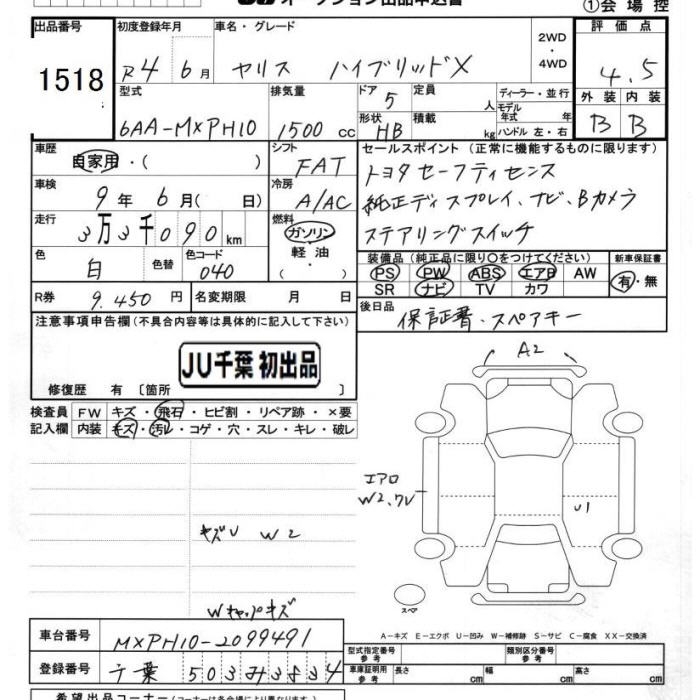 オークション出品申込書
①会場控
出品番号
1518
初度登録年月
R4年6月
車名・グレード
ヤリス ハイブリッドX
2WD・4WD
評価点
4.5
型式
6AA-MXPH10
排気量
1500cc
ドア
5
定員
人
形状
HB
積載
kg
ディーラー・並行
モデル年式 年
ハンドル 左・右
外装 内装
B B
車歴
自家用・( )
シフト
FAT
車検
9年6月( 日)
冷房
A/AC
走行
3万3千090km
燃料
ガソリン・軽油・( )
色
白
色替
色コード
040
R券
9,450円
名変期限 月 日
セールスポイント(正常に機能するものに限ります)
トヨタセーフティセンス
純正ディスプレイ、ナビ、Bカメラ
ステアリングスイッチ
装備品(純正品に限り○をつけてください)
PS PW ABS エアB AW
SR ナビ TV カワ
新車保証書
有・無
後日品
保証書・スペアキー
注意事項申告欄(不具合内容等は具体的に記入して下さい)
JU千葉 初出品
修復歴 有〔箇所 〕
検査員記入欄
FW キズ・飛石・ヒビ割・リペア跡・×要
内装 キズ・汚レ・コゲ・穴・スレ・キレ・破レ
A2
エアロ
W2、
U1
キズU W2
Wキャップキズ
スペア
A-キズ E-エクボ U-凹み W-補修跡 S-サビ C-腐食 XX-交換済
車台番号
MXPH10-2099491
登録番号
千葉 503
3834
型式指定番号 参考
類別区分番号 参考
車庫証明用 参考
長さ cm 幅 cm 高さ cm
希望出品コーナー